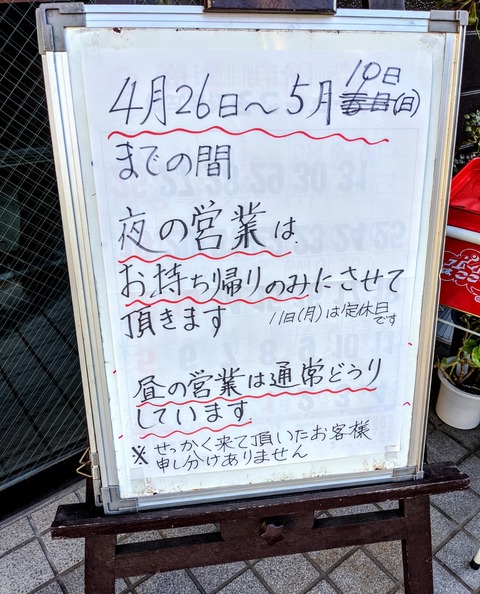 4月26日～5月10日(日)
までの間
夜の営業は
お持ち帰りのみにさせて
頂きます
11日(月)は定休日
です
昼の営業は通常どうり
しています
※せっかく来て頂いたお客様
申し分けありません